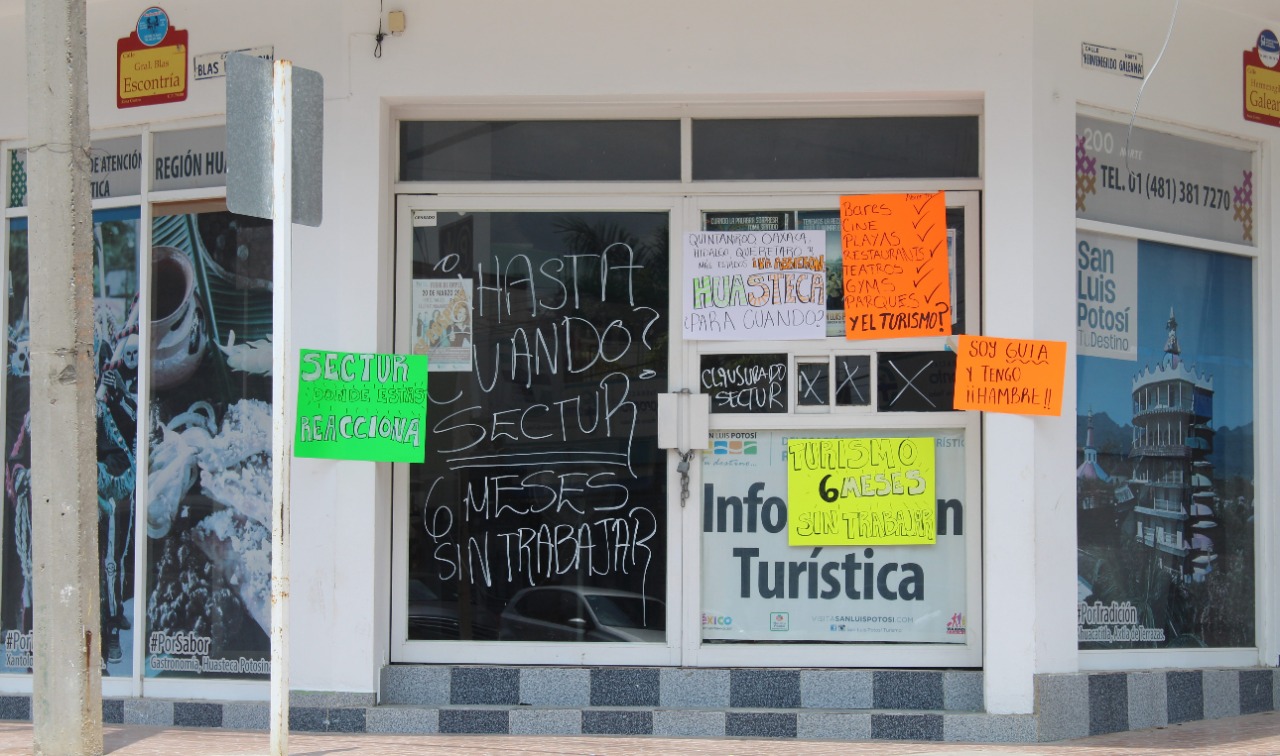 Calle
Gral. Blas
Escontría
BLAS
CALLE NORTE
HERMENEGILDO GALEANA
Galeana
DE ATENCIÓN
TICA
REGIÓN HUA
200 NORTE
TEL. 01 (481) 381 7270
San
Luis
Potosí
TuDestino
CERRADO
¿HASTA
CUANDO?
SECTUR
6 MESES
SIN TRABAJAR
SECTUR
DONDE ESTAS
REACCIONA
QUINTANAROO, OAXACA,
HIDALGO, QUERETARO Y
MAS ESTADOS YA ABRIERON
HUASTECA
¿PARA CUANDO?
Bares ✓
CINE ✓
PLAYAS ✓
RESTAURANTS ✓
TEATROS ✓
GYMS ✓
PARQUES ✓
Y EL TURISMO?
CLAUSURADO
SECTUR
X X X
SOY GUIA
Y TENGO
¡¡HAMBRE!!
TURISMO
6 MESES
SIN TRABAJAR
SAN LUIS POTOSÍ
Tu destino...
Info n
Turística
VISITASANLUISPOTOSI.COM
#PorT
Xantolo
#PorSabor
Gastronomía, Huasteca Potosin
#PorTradición
Huacatitla, Axtla de Terrazas.